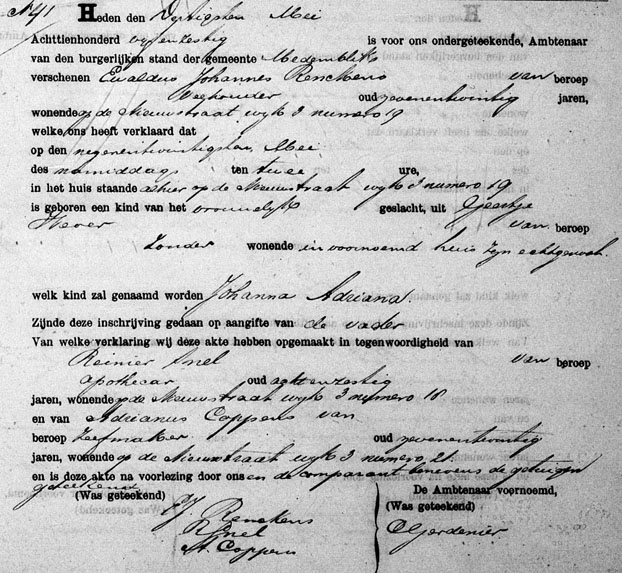 No 41 Heden den Dertigsten Mei
Achttienhonderd vijfenzestig is voor ons ondergeteekende, Ambtenaar
van den burgerlijken stand der gemeente Medemblik
verschenen Ewaldus Johannes Renckens van beroep
Veehouder oud zevenentwintig jaren,
wonende op de Nieuwstraat wyk 3 numero 19
welke ons heeft verklaard dat
op den negenentwintigsten Mei
des namiddags ten twee ure,
in het huis staande alhier op de Nieuwstraat wyk 3 numero 19
is geboren een kind van het vrouwelyk geslacht, uit Geertje
van beroep
Zonder wonende in voornoemd huis zyn echtgenoote
welk kind zal genaamd worden Johanna Adriana.
Zijnde deze inschrijving gedaan op aangifte van de vader
Van welke verklaring wij deze akte hebben opgemaakt in tegenwoordigheid van
Reinier Snel van beroep
apothecar oud acht en zestig
jaren, wonende op de Nieuwstraat wyk 3 numero 18
en van Adrianus Coppens van
beroep Zeefmaker oud zevenentwintig
jaren, wonende op de Nieuwstraat wyk 3 numero 21
en is deze akte na voorlezing door ons en de comparant benevens de getuigen
geteekend
(Was geteekend) De Ambtenaar voornoemd,
(Was geteekend)
Renckens
R Snel
A. Coppens